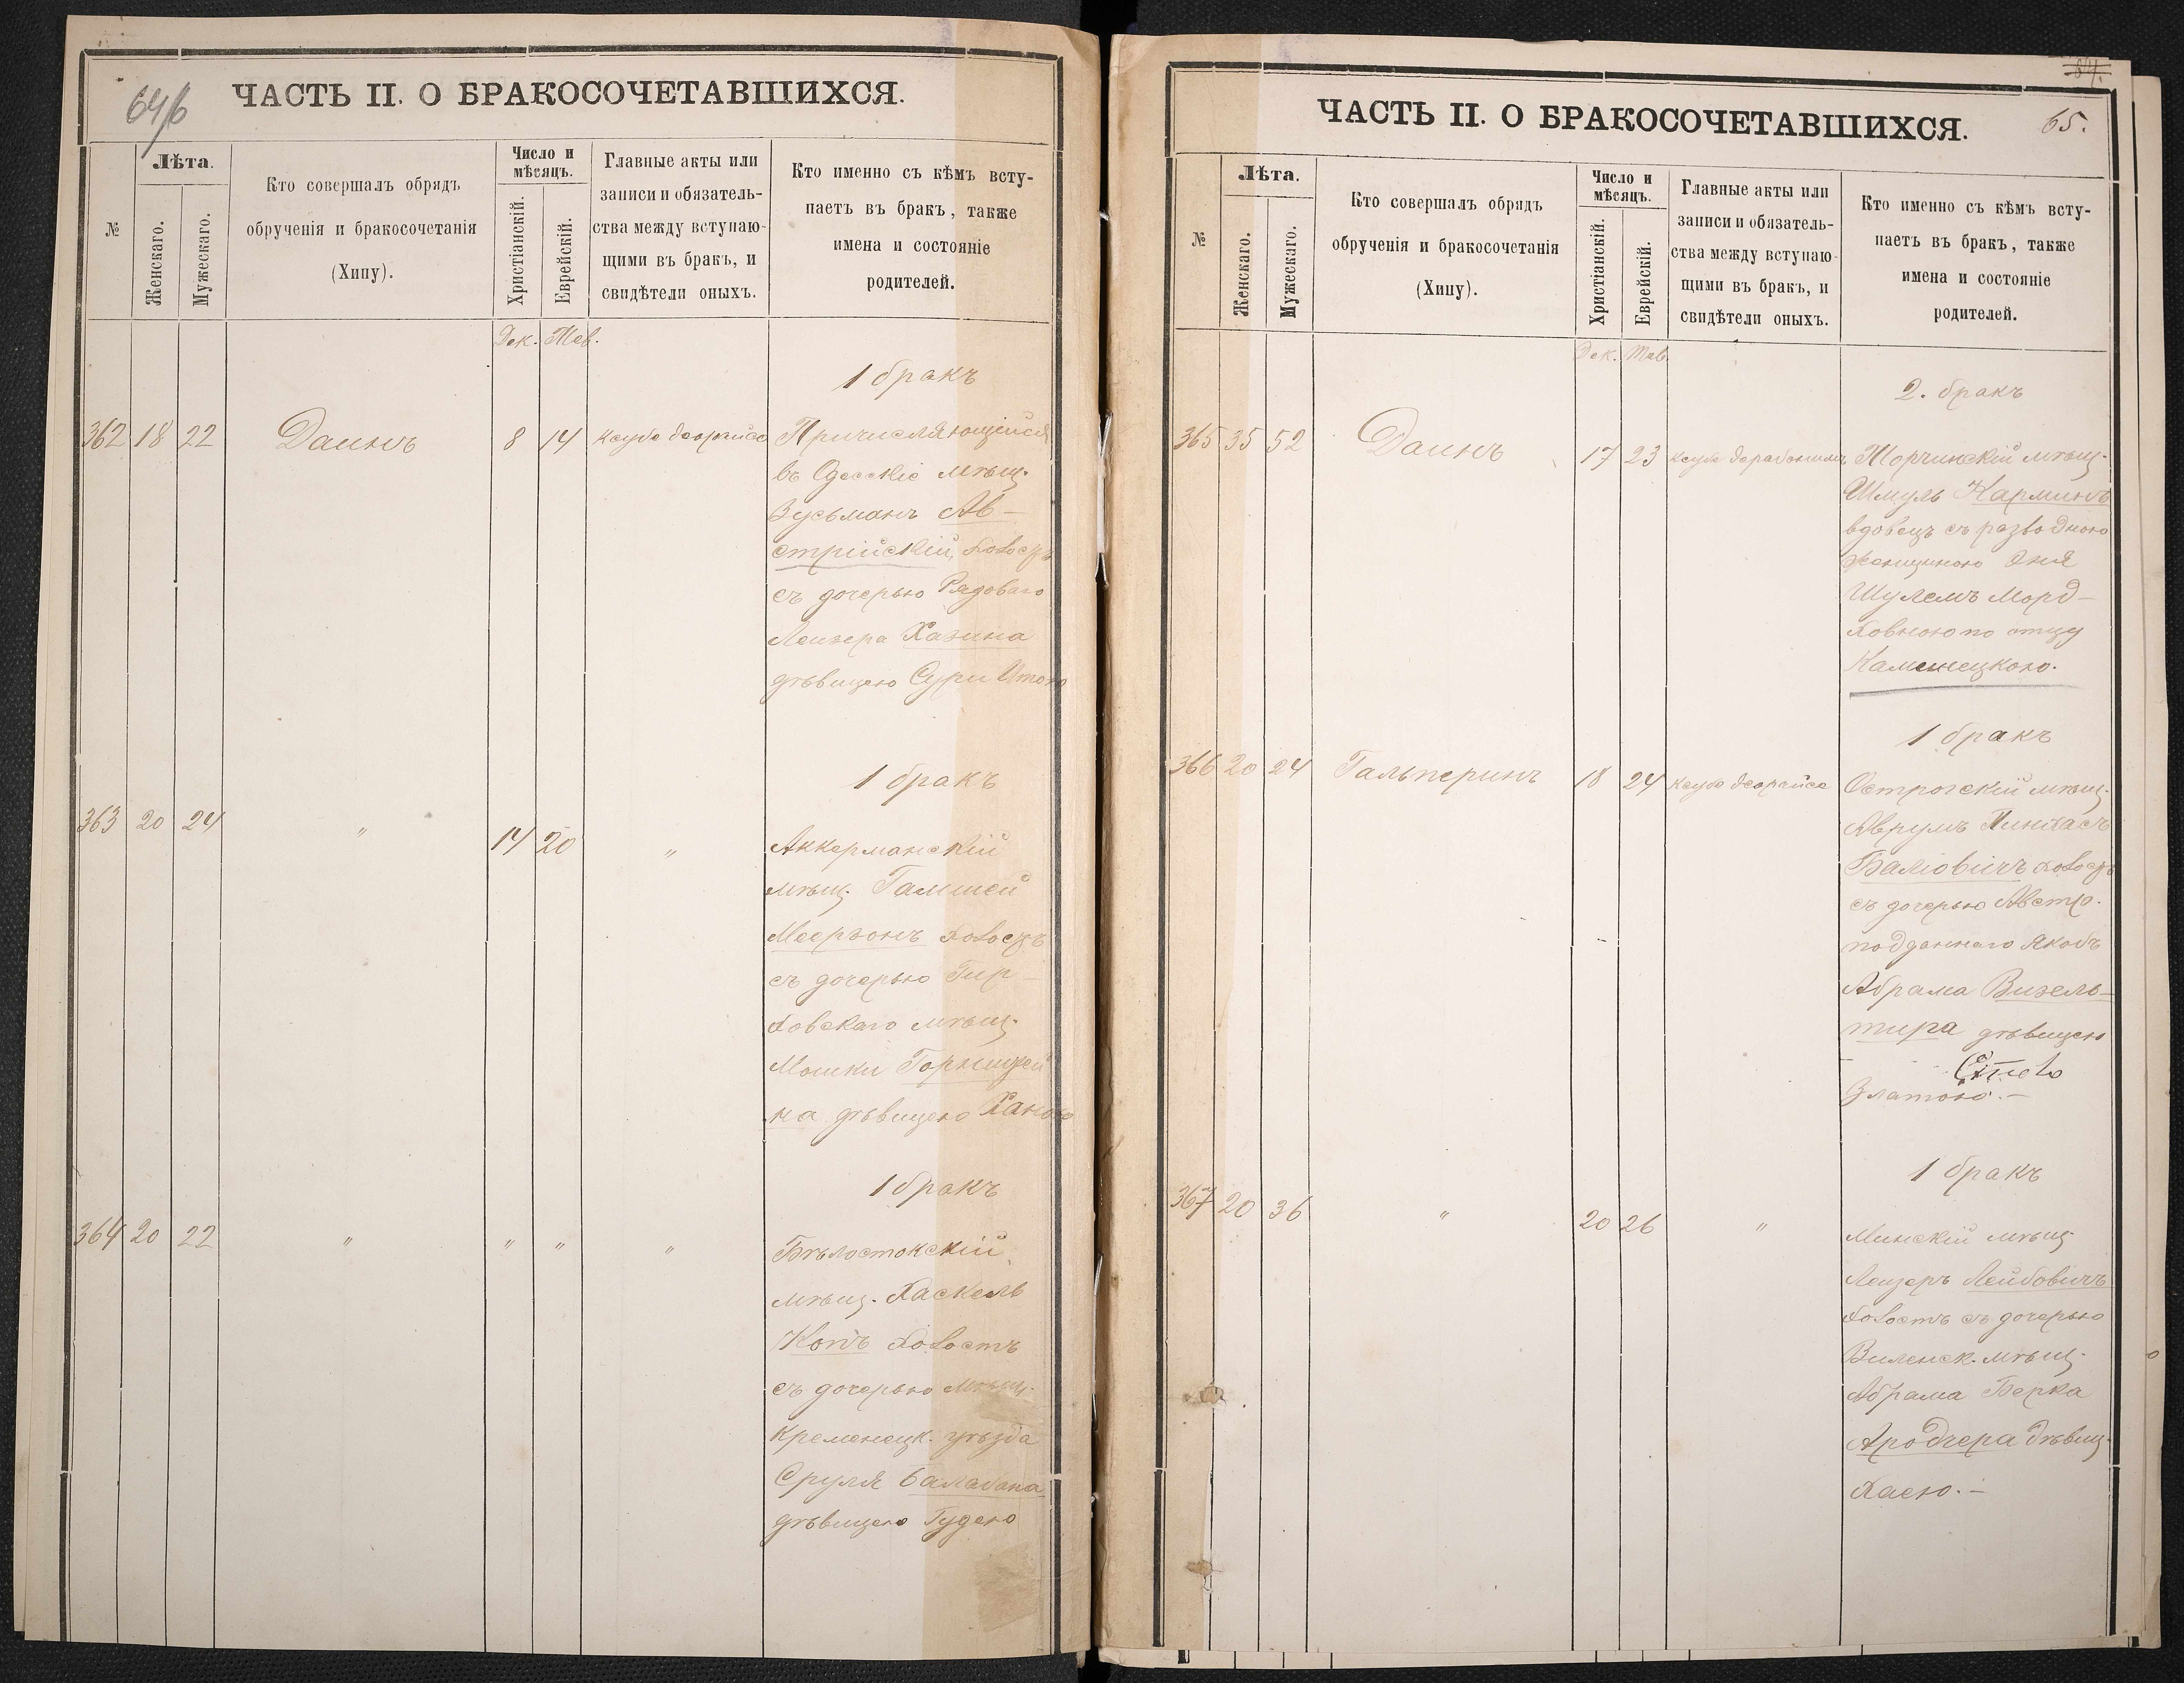 64/б
ЧАСТЬ II. О БРАКОСОЧЕТАВШИХСЯ.
№
Лѣта.
Женскаго.
Мужескаго.
Кто совершалъ обрядъ
обрученія и бракосочетанія
(Хипу).
Число и
мѣсяцъ.
Христіанскій.
Еврейскій.
Главные акты или
записи и обязатель-
ства между вступаю-
щими въ бракъ, и
свидѣтели оныхъ.
Кто именно съ кѣмъ всту-
паетъ въ бракъ, также
имена и состояніе
родителей.
Дек. Тев.
1 бракъ
362 18 22 Даинъ 8 14 ксубе деорайсе Причисляющійся
въ Одесскіе мѣщ.
Зусьманъ Ав-
стрійскій, холост
съ дочерью Рядоваго
Лейзера Хазина
дѣвицею Сури Итою
1 бракъ
363 20 24 " 14 20 " Аккерманскій
мѣщ. Гамшей
Меерзонъ холостъ
съ дочерью Тир-
мѣщ.
Мошки
на дѣвицею Ханою
1 бракъ
364 20 22 " " " " Бѣлостокскій
мѣщ. Хаскель
Копъ холостъ
съ дочерью мѣщ.
Кременецк. уѣзда
Сруля Балабана
дѣвицею Гудею
64.
65.
ЧАСТЬ II. О БРАКОСОЧЕТАВШИХСЯ.
№
Лѣта.
Женскаго.
Мужескаго.
Кто совершалъ обрядъ
обрученія и бракосочетанія
(Хипу).
Число и
мѣсяцъ.
Христіанскій.
Еврейскій.
Главные акты или
записи и обязатель-
ства между вступаю-
щими въ бракъ, и
свидѣтели оныхъ.
Кто именно съ кѣмъ всту-
паетъ въ бракъ, также
имена и состояніе
родителей.
Дек. Тев.
2. бракъ
365 35 52 Даинъ 17 23 ксубе Торчинскій мѣщ.
Шмуль Карминъ
вдовецъ съ разводною
женщиною Эня
Шулемъ Морд-
ковною по отцу
Каменецкою.
1 бракъ
366 20 24 Гальперинъ 18 24 ксубе деорайсе Острогскій мѣщ.
Аврумъ Пинхасъ
холост
съ дочерью Австр.
подданнаго Якобъ
Абрама Визель-
тира дѣвицею
Златою.-
1 бракъ
367 20 36 " 20 26 " Минскій мѣщ
Лейзеръ Лейбовичъ
холостъ съ дочерью
Виленск. мѣщ.
Абрама Берка
дѣвиц.
Хаею.-